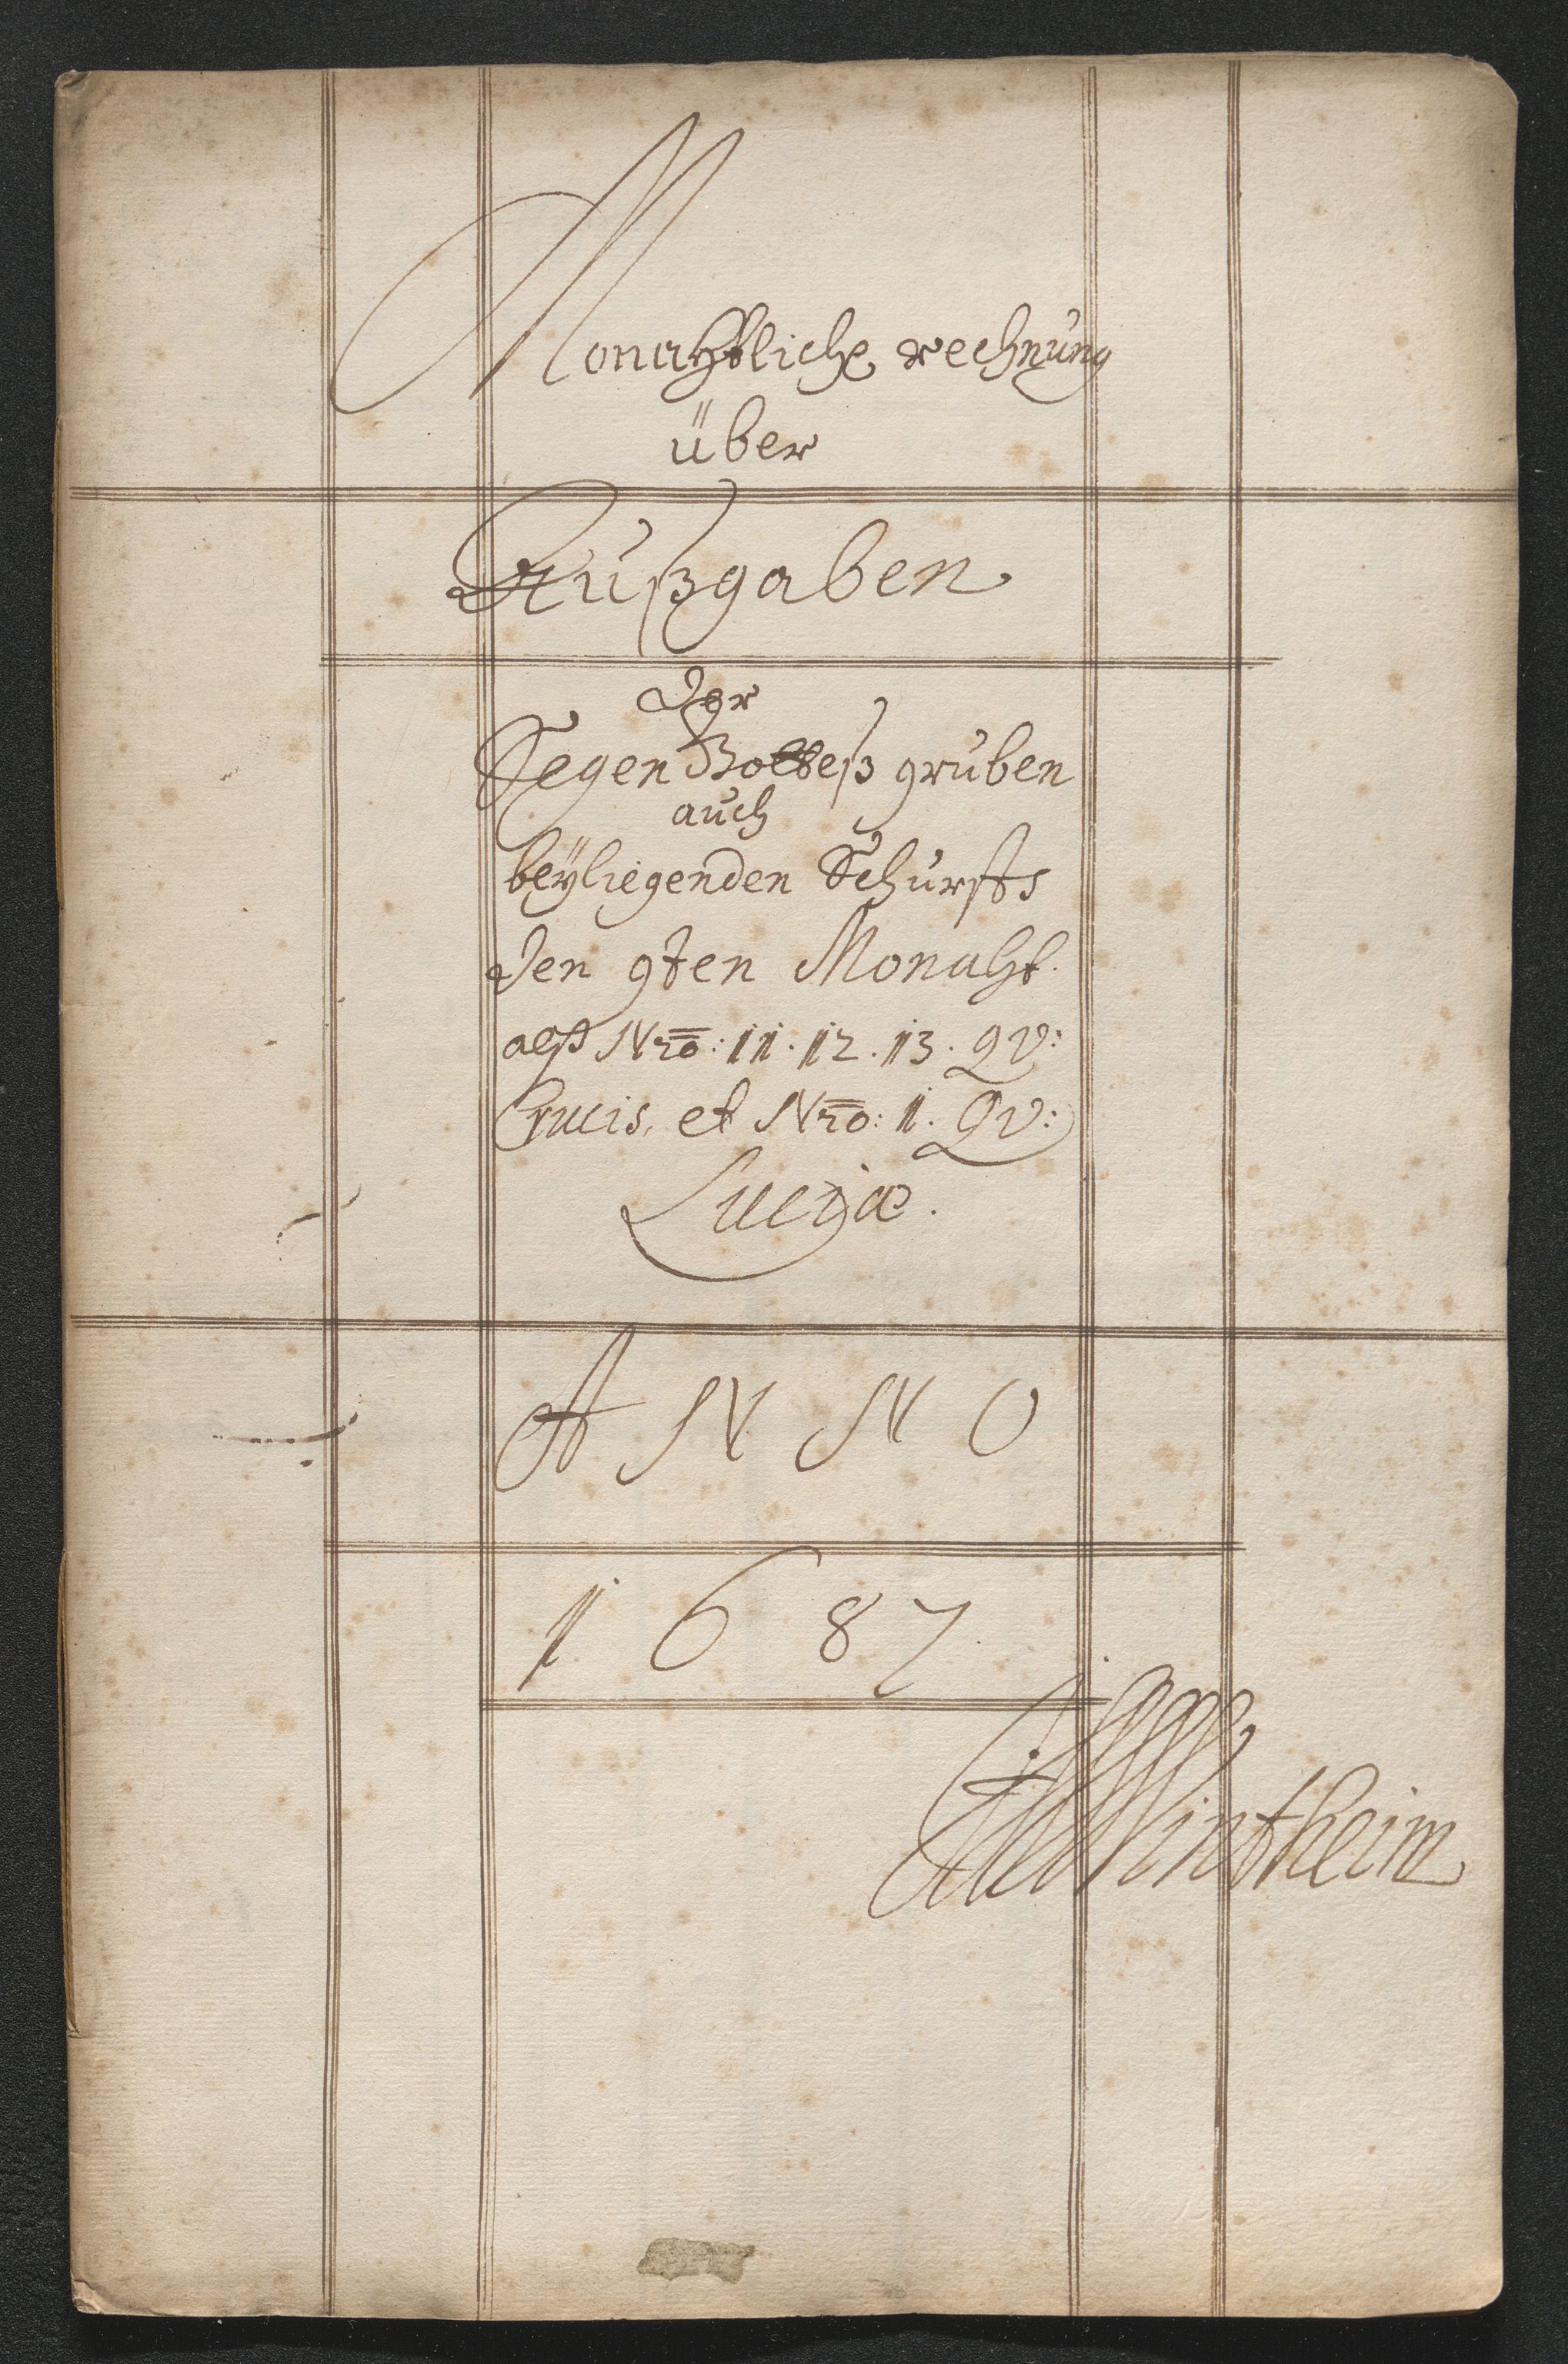 Monahtliche rechnung
über
Außgaben
Der
Segen Gotteß gruben
auch
beÿliegenden Schurfts
den 9ten Monaht
alß Nro: 11. 12. 13. Qv:
Crucis. et Nro: 1. Qv:
Luciæ.
ANNO
1687.